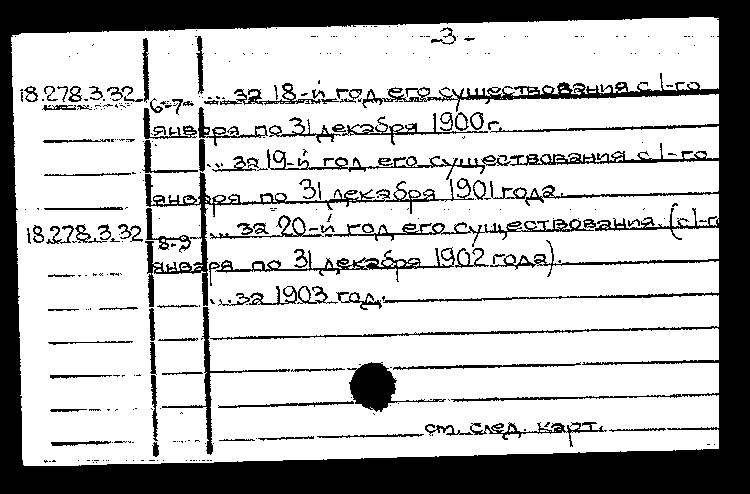 -3-
18.278.3.32 6-7 ... за 18-й год его существования с 1-го
января по 31 декабря 1900 г.
... за 19-й год его существования с 1-го
января по 31 декабря 1901 года.
18.278.3.32 8-9 ... за 20-й год его существования. (с 1-г
января по 31 декабря 1902 года).
... за 1903 год.
см. след. карт.